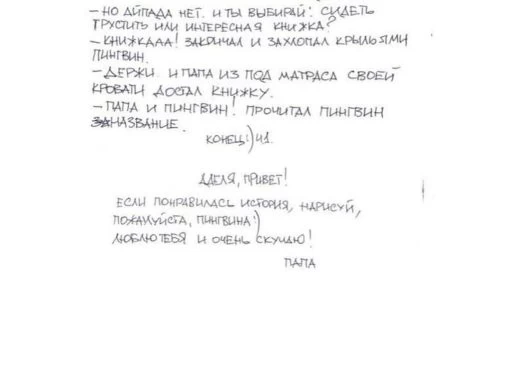 – НО АЙПАДА НЕТ. И ТЫ ВЫБИРАЙ: СИДЕТЬ
ГРУСТИТЬ ИЛИ ИНТЕРЕСНАЯ КНИЖКА?
– КНИЖКААА! ЗАКРИЧАЛ И ЗАХЛОПАЛ КРЫЛЬЯМИ
ПИНГВИН.
– ДЕРЖИ. И ПАПА ИЗ ПОД МАТРАСА СВОЕЙ
КРОВАТИ ДОСТАЛ КНИЖКУ.
– ПАПА И ПИНГВИН! ПРОЧИТАЛ ПИНГВИН
НАЗВАНИЕ.
КОНЕЦ:) Ч1.
АДЕЛЯ, ПРИВЕТ!
ЕСЛИ ПОНРАВИЛАСЬ ИСТОРИЯ, НАРИСУЙ,
ПОЖАЛУЙСТА, ПИНГВИНА:)
ЛЮБЛЮ ТЕБЯ И ОЧЕНЬ СКУЧАЮ!
ПАПА